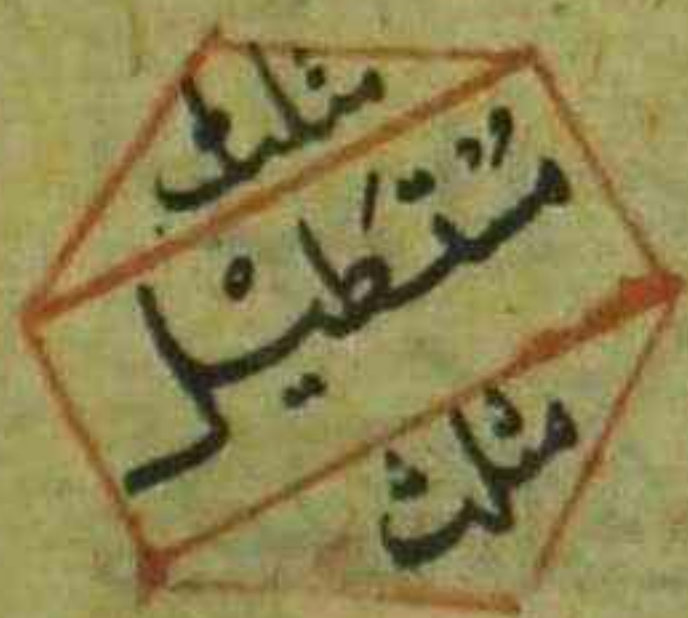 مثلث
مُسْتَطِيْل
مثلث